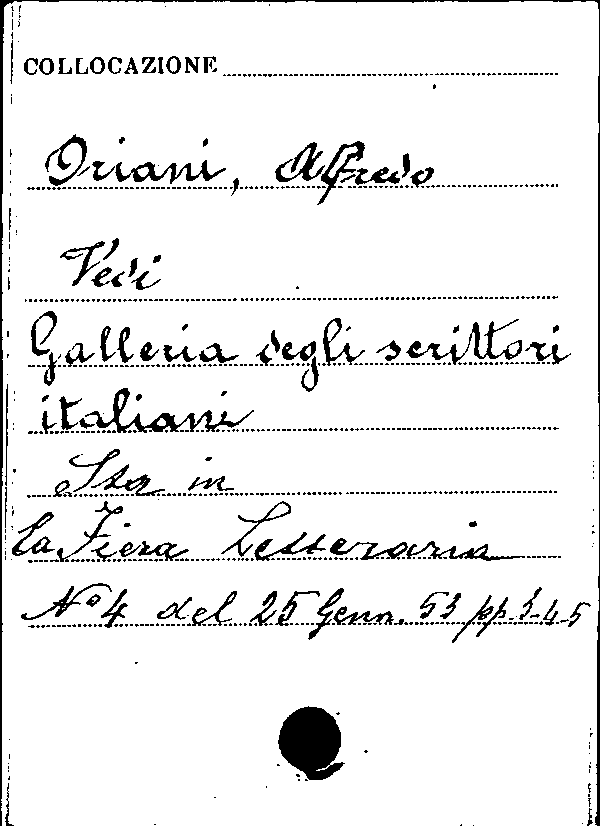 COLLOCAZIONE
Oriani, Alfredo
Vedi
Galleria degli scrittori
italiani
Sta in
La Fiera Letteraria
N° 4 del 25 Genn. 53 pp 3-4-5